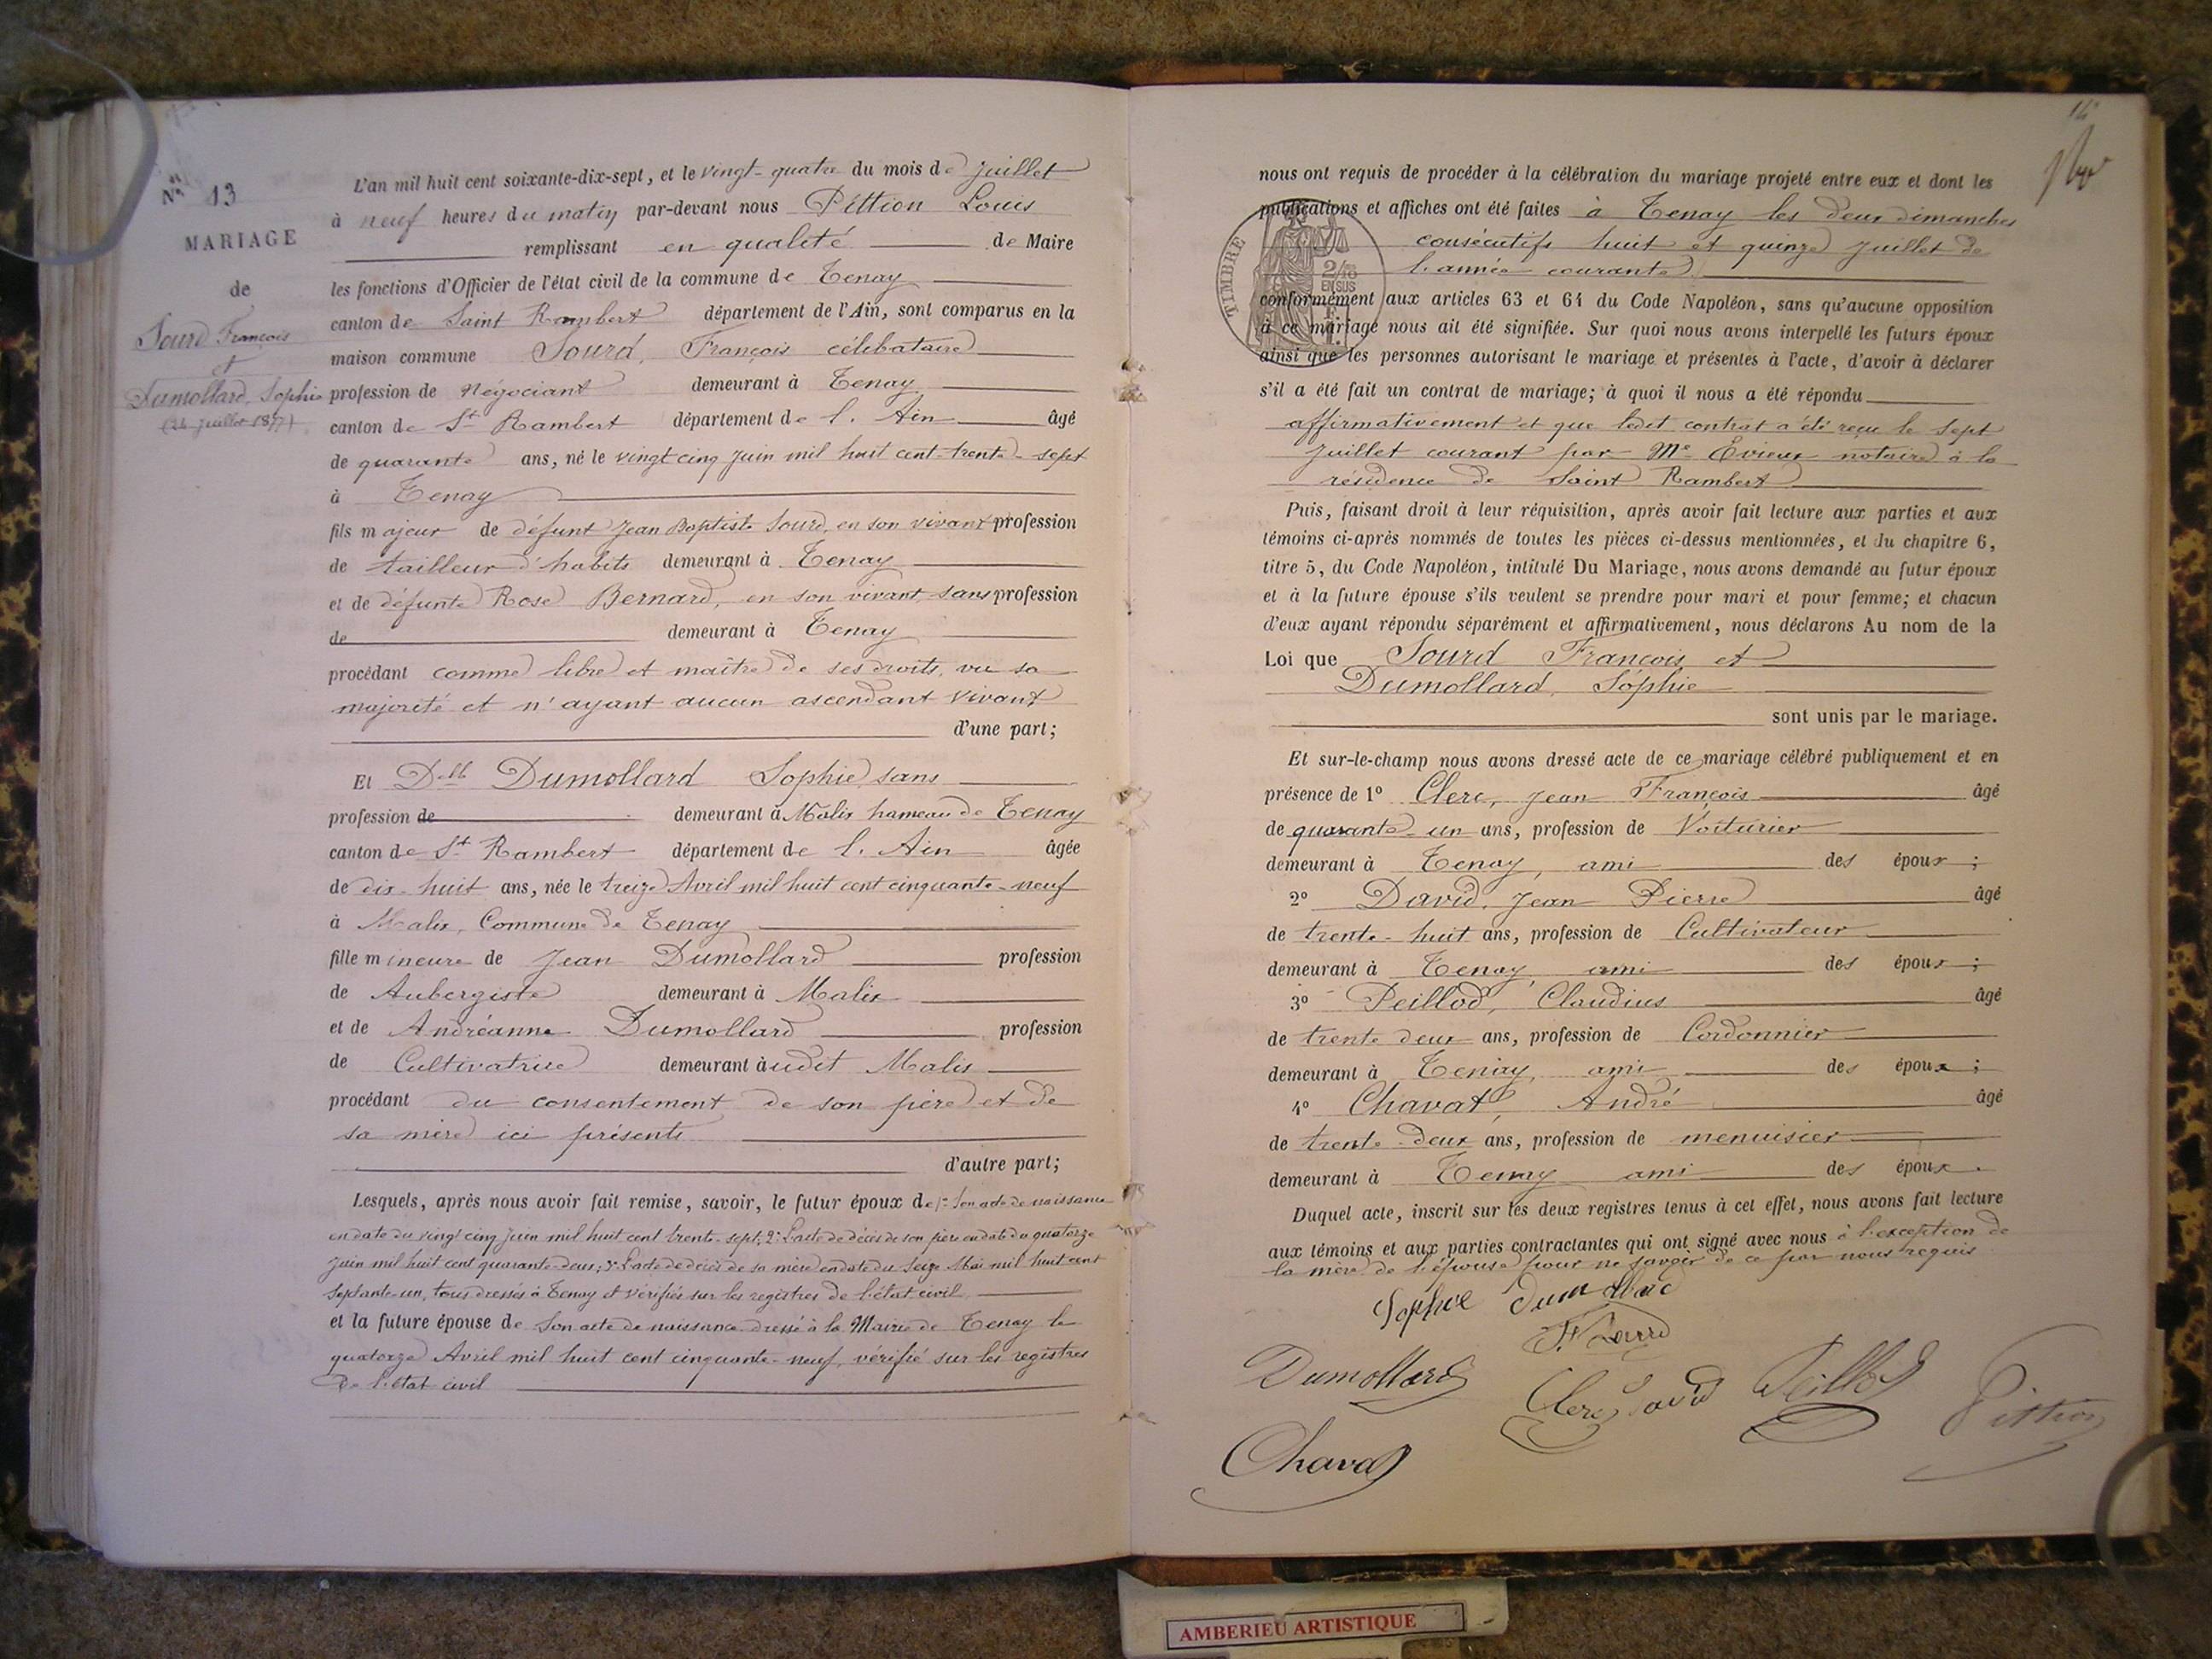 N° 13
MARIAGE
de
Sourd François
et
Dumollard, Sophie
(24 juillet 1877)
L'an mil huit cent soixante-dix-sept, et le vingt-quatre du mois de Juillet
à neuf heures du matin par-devant nous Pittion Louis
remplissant en qualité de Maire
les fonctions d'Officier de l'état civil de la commune de Tenay
canton de Saint Rambert département de l'Ain, sont comparus en la
maison commune Sourd, François célibataire
profession de Négociant demeurant à Tenay
canton de St Rambert département de l'Ain âgé
de quarante ans, né le vingt cinq Juin mil huit cent trente-sept
à Tenay
fils majeur de défunt Jean Baptiste Sourd, en son vivant profession
de tailleur d'habits demeurant à Tenay
et de défunte Rose Bernard, en son vivant, sans profession
de demeurant à Tenay
procédant comme libre et maître de ses droits, vu sa
majorité et n'ayant aucun ascendant vivant
d'une part;
Et Dlle Dumollard Sophie, sans
profession de demeurant à Malix hameau de Tenay
canton de St Rambert département de l'Ain âgée
de dix-huit ans, née le treize Avril mil huit cent cinquante-neuf
à Malix, Commune de Tenay
fille mineure de Jean Dumollard profession
de Aubergiste demeurant à Malix
et de Andréanne Dumollard profession
de Cultivatrice demeurant àudit Malix
procédant du consentement de son père et de
sa mère ici présents
d'autre part;
Lesquels, après nous avoir fait remise, savoir, le futur époux de 1° Son acte de naissance
en date du vingt cinq juin mil huit cent trente-sept; 2° L'acte de décès de son père en date du quatorze
Juin mil huit cent quarante-deux; 3° L'acte de décès de sa mère en date du Seize Mai mil huit cent
Septante-un, tous dressés à Tenay et vérifiés sur les registres de l'état civil
et la future épouse de Son acte de naissance dressé à la Mairie de Tenay le
quatorze Avril mil huit cent cinquante-neuf, vérifié sur les registres
de l'état civil
14
nous ont requis de procéder à la célébration du mariage projeté entre eux et dont les
publications et affiches ont été faites à Tenay les deux dimanches
consécutifs huit et quinze Juillet de
l'année courante
TIMBRE
2/10
EN SUS
conformément aux articles 63 et 64 du Code Napoléon, sans qu'aucune opposition
à ce mariage nous ait été signifiée. Sur quoi nous avons interpellé les futurs époux
ainsi que les personnes autorisant le mariage et présentes à l'acte, d'avoir à déclarer
s'il a été fait un contrat de mariage; à quoi il nous a été répondu
affirmativement et que ledit contrat a été reçu le Sept
Juillet courant par Me Évieux notaire à la
résidence de Saint Rambert
Puis, faisant droit à leur réquisition, après avoir fait lecture aux parties et aux
témoins ci-après nommés de toutes les pièces ci-dessus mentionnées, et du chapitre 6,
titre 5, du Code Napoléon, intitulé Du Mariage, nous avons demandé au futur époux
et à la future épouse s'ils veulent se prendre pour mari et pour femme; et chacun
d'eux ayant répondu séparément et affirmativement, nous déclarons Au nom de la
Loi que Sourd François et
Dumollard, Sophie
sont unis par le mariage.
Et sur-le-champ nous avons dressé acte de ce mariage célébré publiquement et en
présence de 1° Clerc, Jean François âgé
de quarante-un ans, profession de Voiturier
demeurant à Tenay, ami des époux;
2° David, Jean Pierre âgé
de trente-huit ans, profession de Cultivateur
demeurant à Tenay, ami des époux;
3° Peillod, Claudius âgé
de trente deux ans, profession de Cordonnier
demeurant à Tenay, ami des époux;
4° Chavat, André âgé
de trente-deux ans, profession de menuisier
demeurant à Tenay ami des époux.
Duquel acte, inscrit sur les deux registres tenus à cet effet, nous avons fait lecture
aux témoins et aux parties contractantes qui ont signé avec nous à l'exception de
la mère de l'épouse pour ne savoir de ce par nous requis
Sophie Dumollard
F. Sourd
Dumollard
Clerc David Peillod Pittion
Chavat
AMBERIEU ARTISTIQUE